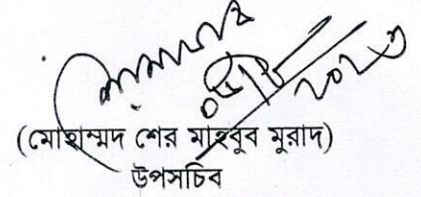 ২০২৩
(মোহাম্মদ শের মাহবুব মুরাদ)
উপসচিব